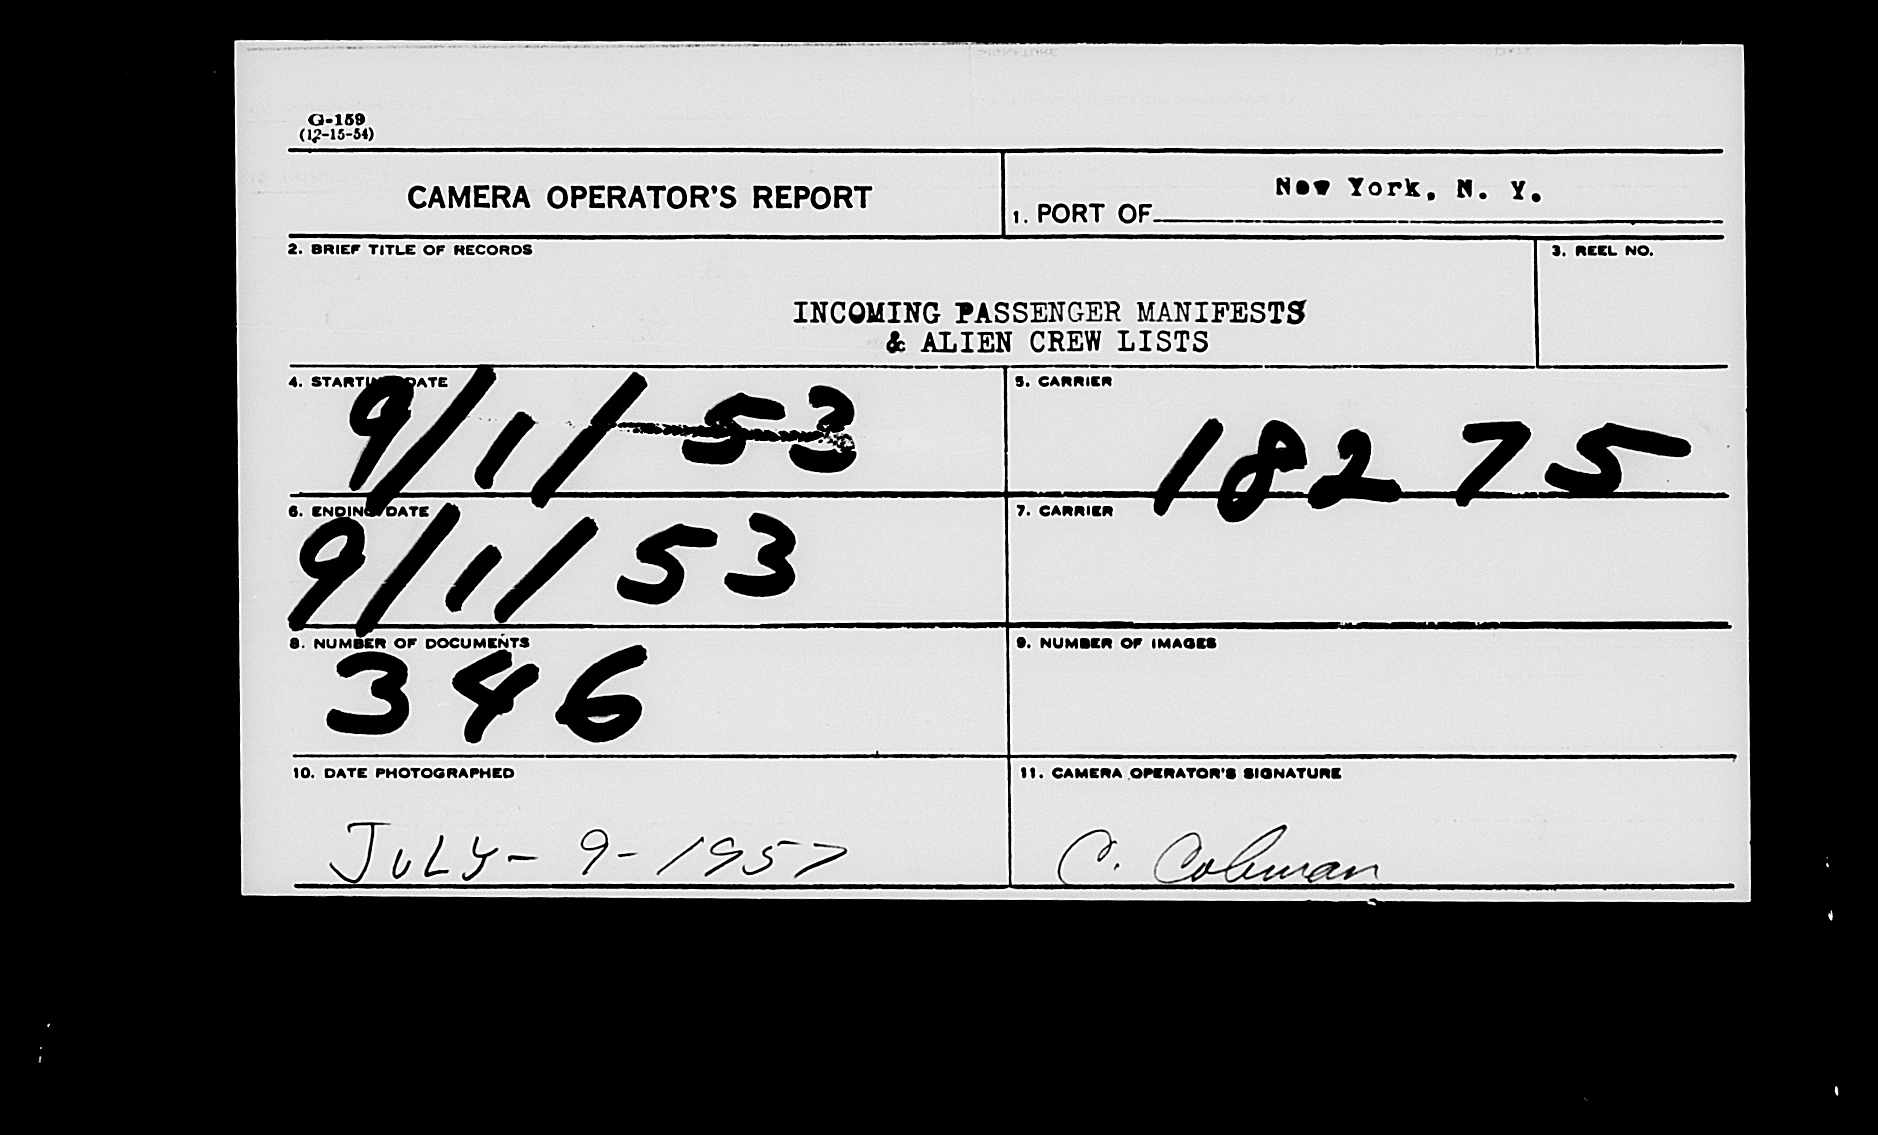 G-159
(12-15-54)
CAMERA OPERATOR'S REPORT
1. PORT OF New York, N. Y.
2. BRIEF TITLE OF RECORDS
3. REEL NO.
INCOMING PASSENGER MANIFESTS
& ALIEN CREW LISTS
4. STARTING DATE
9/1/53
5. CARRIER
18275
6. ENDING DATE
9/1/53
7. CARRIER
8. NUMBER OF DOCUMENTS
346
9. NUMBER OF IMAGES
10. DATE PHOTOGRAPHED
JULY-9-1957
11. CAMERA OPERATOR'S SIGNATURE
C. Colman